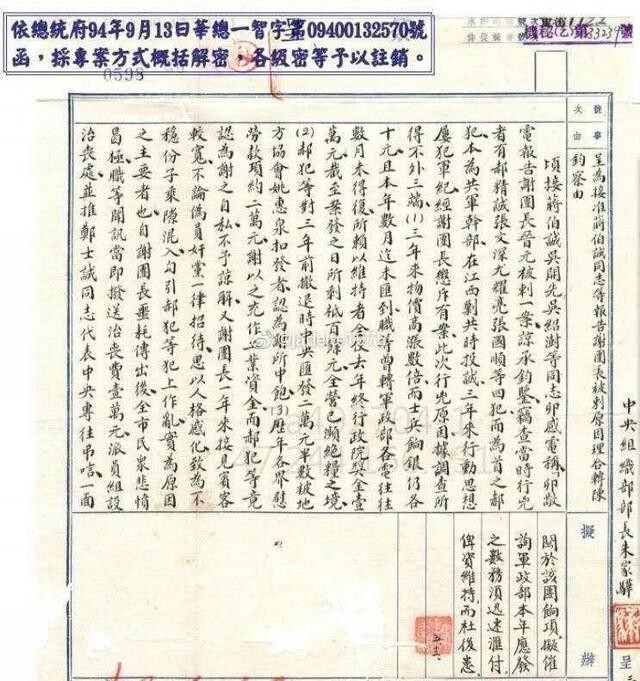 依總統府94年9月13日華總一智字第09400132570號
函，採專案方式概括解密，各級密等予以註銷。
機秘(乙)第33239號
0598
號次
事由
呈為接准蔣伯誠同志等報告謝團長被刺原因理合轉陳
鈞察由
中央組織部部長朱家驊
呈
頃接蔣伯誠吳開先吳紹澍等同志卯感電稱卯敬
電報告謝團長晉元被刺一案諒承鈞鑒竊查當時行兇
者有郝精誠張文深尤耀亮張國順等四犯而為首之郝
犯本為共軍幹部在江西剿共時投誠三年來行動思想
屢犯軍紀經謝團長懲斥有案此次行兇原因據調查所
得不外三端(1)三年來物價高漲數倍而士兵餉銀仍各
十元且本年數月迄未匯到職等曾轉軍政部各電往往
數月未得復所賴以維持者僉以去年終行政院獎金壹
萬元截至案發之日所剩祇百餘元全營已瀕絕糧之境
(2)郝犯等對三年前撤退時中央匯發二萬元半數被地
方協會姚惠泉扣發者認為謝所中飽(3)歷年各界慰
勞款項約二萬元謝以之充作工業資金而郝犯等竟
認為謝之自私不予諒解又謝團長一年來接見賓客
較寬不論偽員奸黨一律招待思以人格感化致為不
穩份子乘隙混入勾引郝犯等犯上作亂實為原因
之主要者也自謝團長噩耗傳出後全市民眾悲憤
昌極職等聞訊當即撥送治喪費壹萬元派員組設
治喪處並推鄭士誠同志代表中央專往弔唁一面
擬辦
關於該團餉項擬催
詢軍政部本年應發
之數務須迅速滙付
俾資維持而杜後患